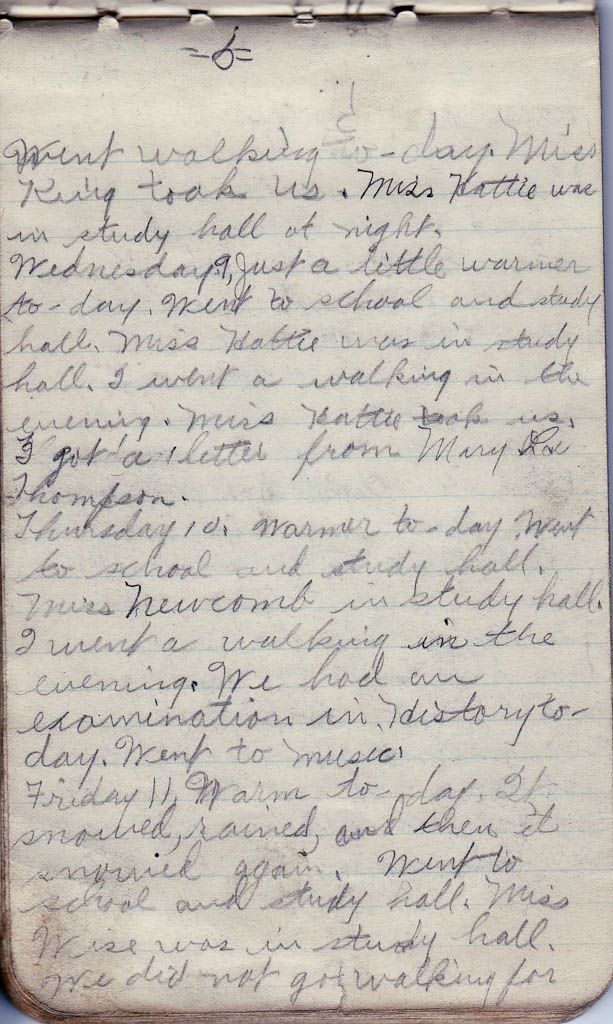 =6=
Went walking to-day. Miss
King took us. Miss Hattie was
in study hall at night.
Wednesday 9, Just a little warmer
to-day. Went to school and study
hall. Miss Hattie was in study
hall. I went a walking in the
evening. Miss Hattie took us.
I got a letter from Mary Lee
Thompson.
Thursday 10. Warmer to-day. Went
to school and study hall.
Miss Newcomb in study hall.
I went a walking in the
evening. We had an
examination in History to-
day. Went to music.
Friday 11, Warm to-day. It
snowed, rained, and then it
snowed again. Went to
school and study hall. Miss
Wise was in study hall.
We did not go walking for